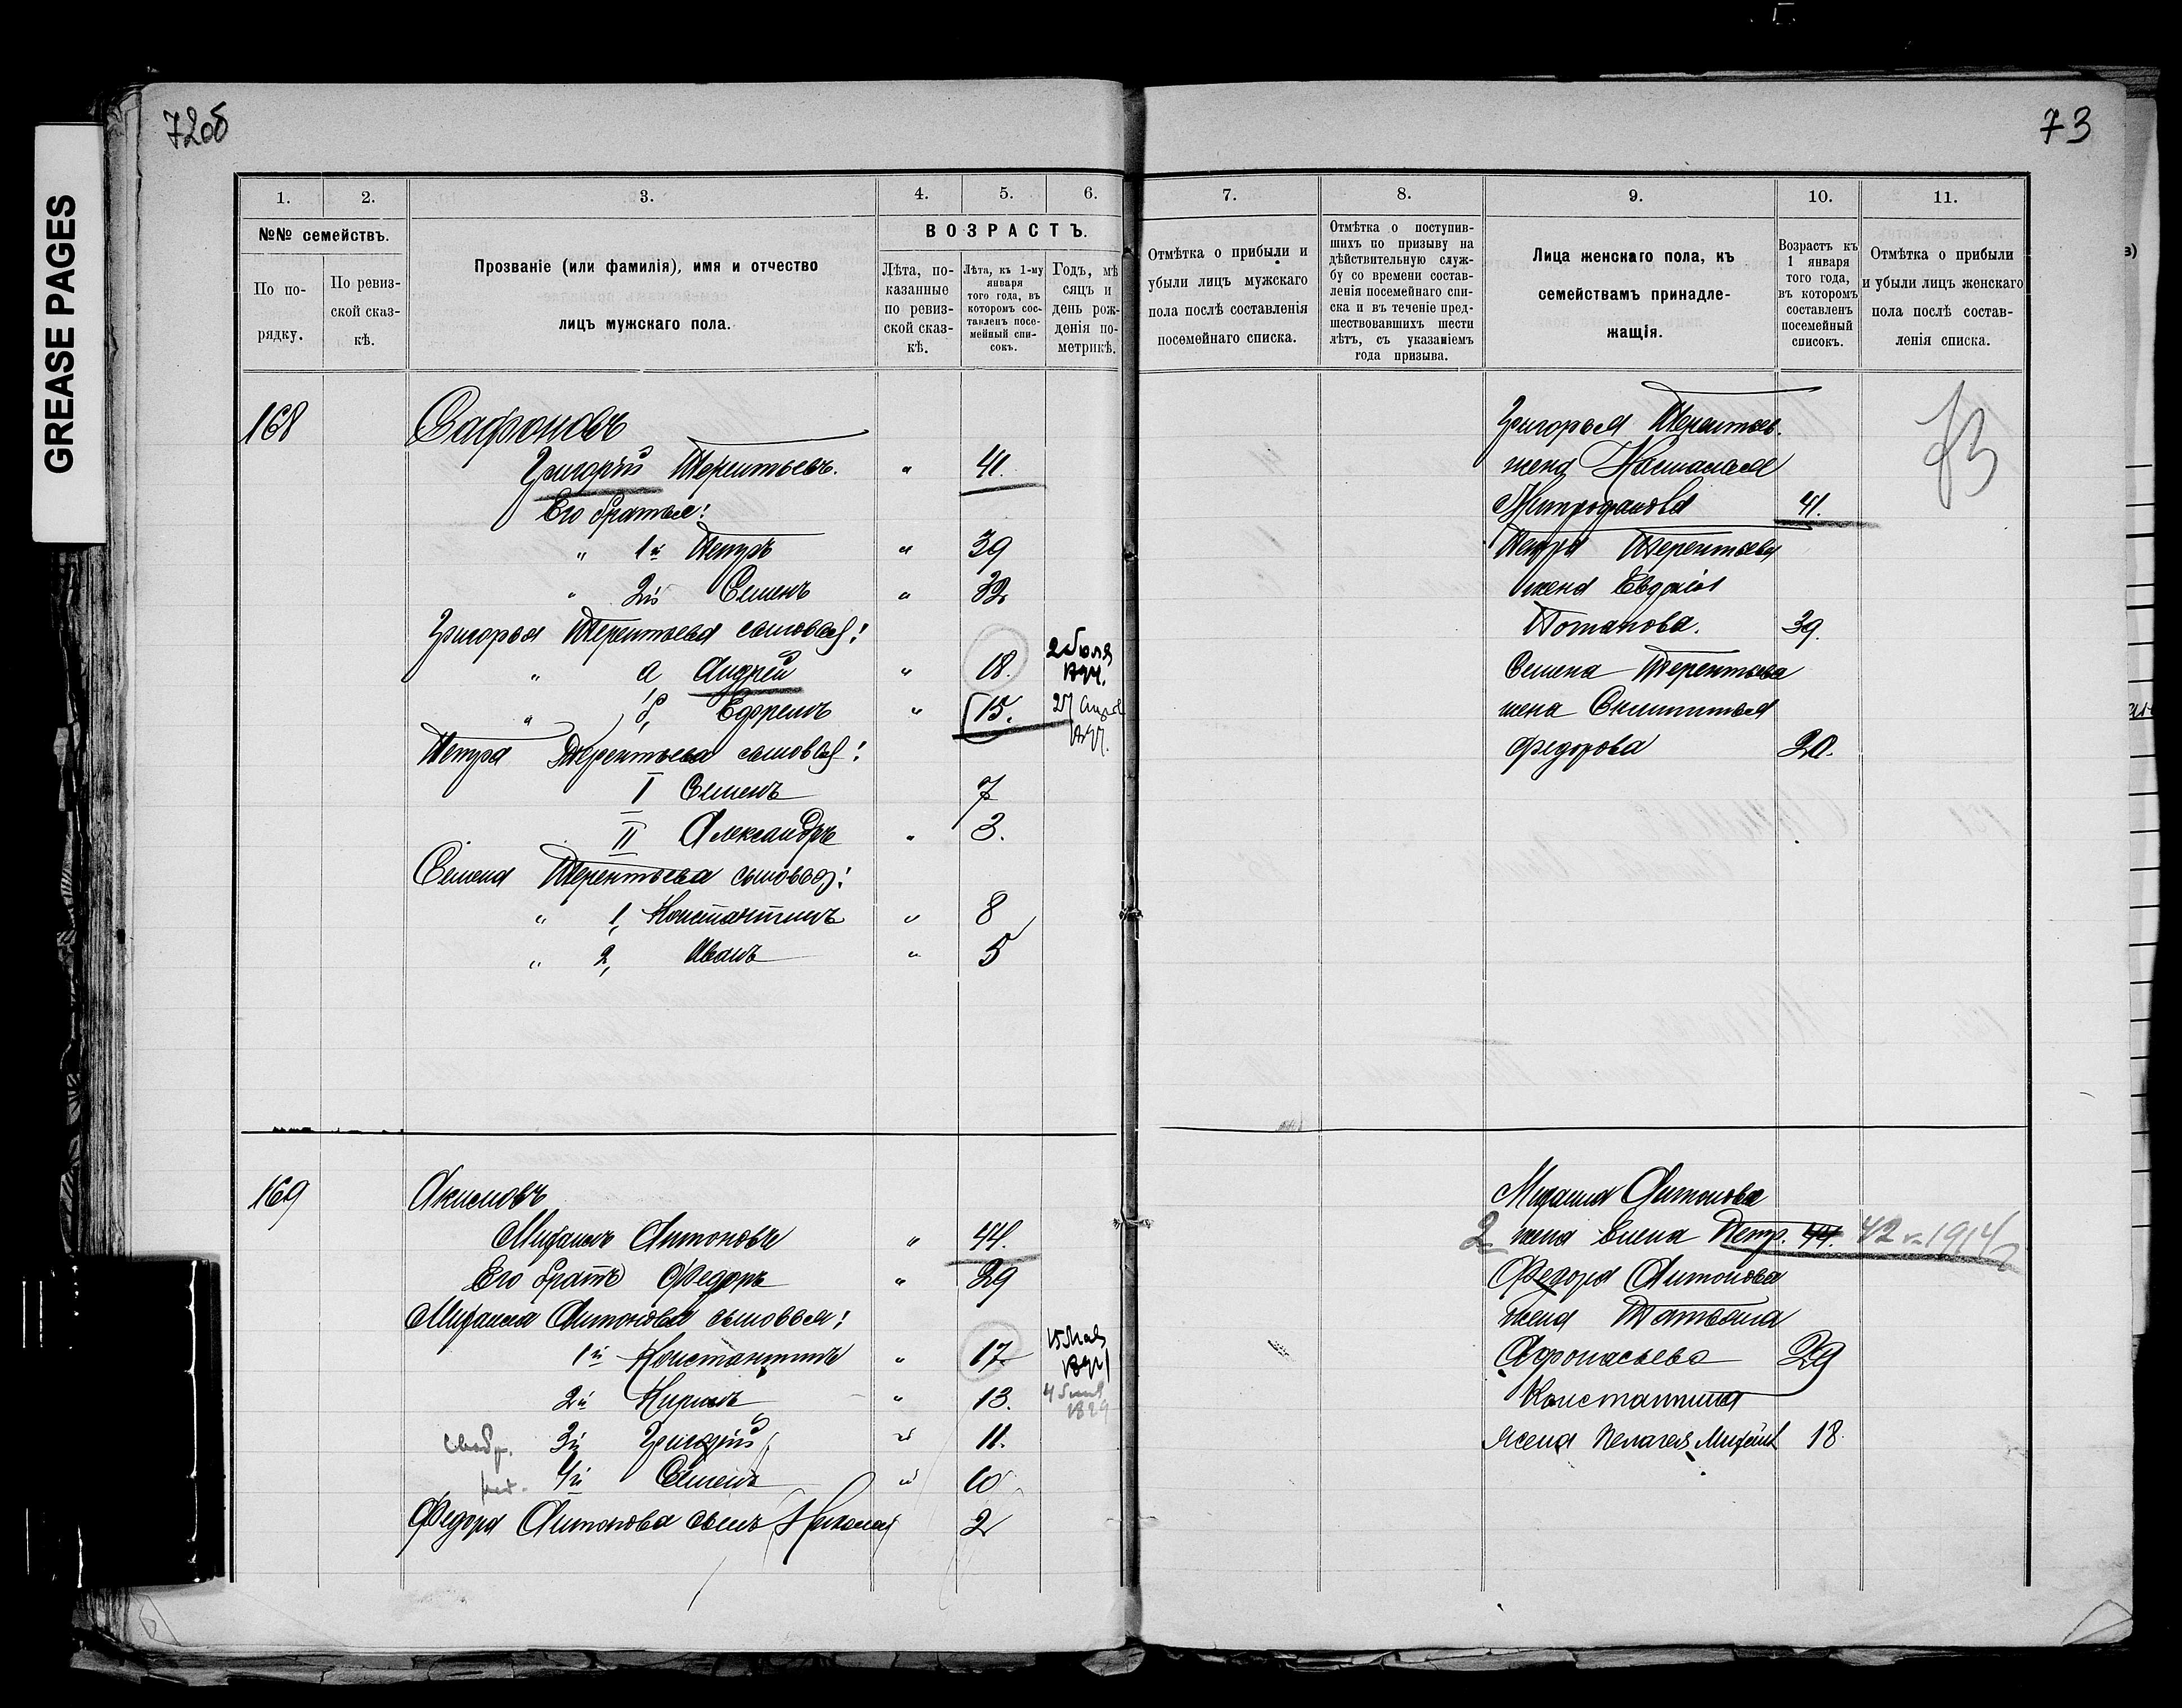 72об
73
GREASE PAGES
1.
2.
3.
4.
5.
6.
№№ семействъ.
По по-
рядку.
По ревиз-
ской сказ-
кѣ.
Прозваніе (или фамилія), имя и отчество
лицъ мужскаго пола.
ВОЗРАСТЪ.
Лѣта, по-
казанные
по ревиз-
ской сказ-
кѣ.
Лѣта, къ 1-му
января
того года, въ
которомъ сос-
тавленъ посе-
мейный спи-
сокъ.
Годъ, мѣ
сяцъ и
день рож-
денія по-
метрикѣ.
168
Сафоновъ
Григорій Терентьевъ. " 41.
Его братья:
" 1й Петръ " 39
" 2й Семенъ " 32
Григорья Терентьева сыновья:
" а Андрей " 18.
" б, Ефремъ " 15. 27
Петра Терентьева сыновья:
I Семенъ 7
II Александръ " 3.
Семена Терентьева сыновья:
" 1, Константинъ " 8
" 2, Иванъ " 5
169
Акимовъ
Михаилъ Антоновъ " 44.
Его братъ Федоръ " 29
Михаила Антонова сыновья:
1й Константинъ " 17 15 Мая
2й Кирилъ " 13.
3й Григорій " 11.
4й Семенъ " 10
Федора Антонова сынъ Николай 2
7.
8.
9.
10.
11.
Отмѣтка о прибыли и
убыли лицъ мужскаго
пола послѣ составленія
посемейнаго списка.
Отмѣтка о поступив-
шихъ по призыву на
дѣйствительную служ-
бу со времени состав-
ленія посемейнаго спи-
ска и въ теченіе пред-
шествовавшихъ шести
лѣтъ, съ указаніемъ
года призыва.
Лица женскаго пола, къ
семействамъ принадле-
жащія.
Возрастъ къ
1 января
того года,
въ которомъ
составленъ
посемейный
списокъ.
Отмѣтка о прибыли
и убыли лицъ женскаго
пола послѣ состав-
ленія списка.
Григорья Терентьев.
жена Наталья
Митрофанова 41.
Петра Терентьева
жена Евдокія
Потапова. 39.
Семена Терентьева
жена
Федорова 30.
73
Михаила Антонова
2 жена Елена Петр. 44. 42 1914
Федора Антонова
жена Татьяна
Афонасьева 29
Константина
жена Пелагея 18